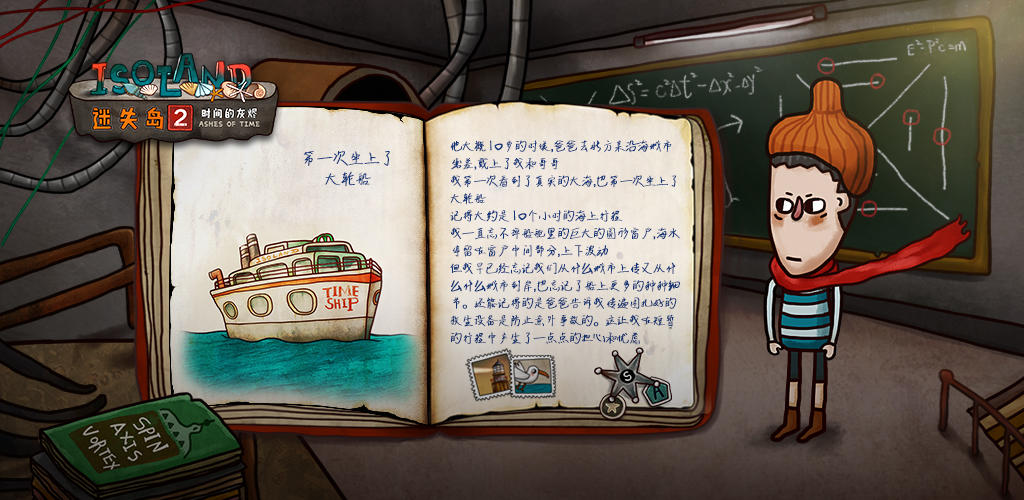 ISOLAND
迷失岛2 时间的灰烬
ASHES OF TIME
第一次坐上了
大轮船
TIME
SHIP
他大概10岁的时候,爸爸去北方某沿海城市
出差,载上了我和哥哥
我第一次看到了真实的大海,也第一次坐上了
大轮船
记得大约是10个小时的海上行程
我一直忘不掉船舱里的巨大的圆形窗户,海水
停留在窗户中间部分,上下波动
但我早已经忘记我们从什么城市上传又从什
么什么城市到岸,也忘记了船上更多的种种细
节。还能记得的是爸爸告诉我
救生设备是防止意外事故的。这让我在短暂
的行程中产生了一点点的担心和忧虑
SPIN
AXIS
VORTEX
ΔS²=c²Δt²-Δx²-Δy²
E²-P²c=m